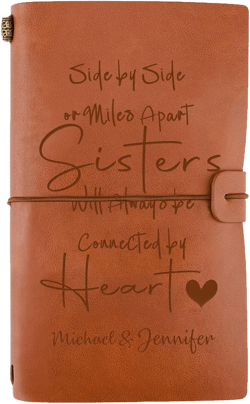 Side by Side
or Miles Apart
Sisters
Will Always be
Connected by
Heart
Michael & Jennifer